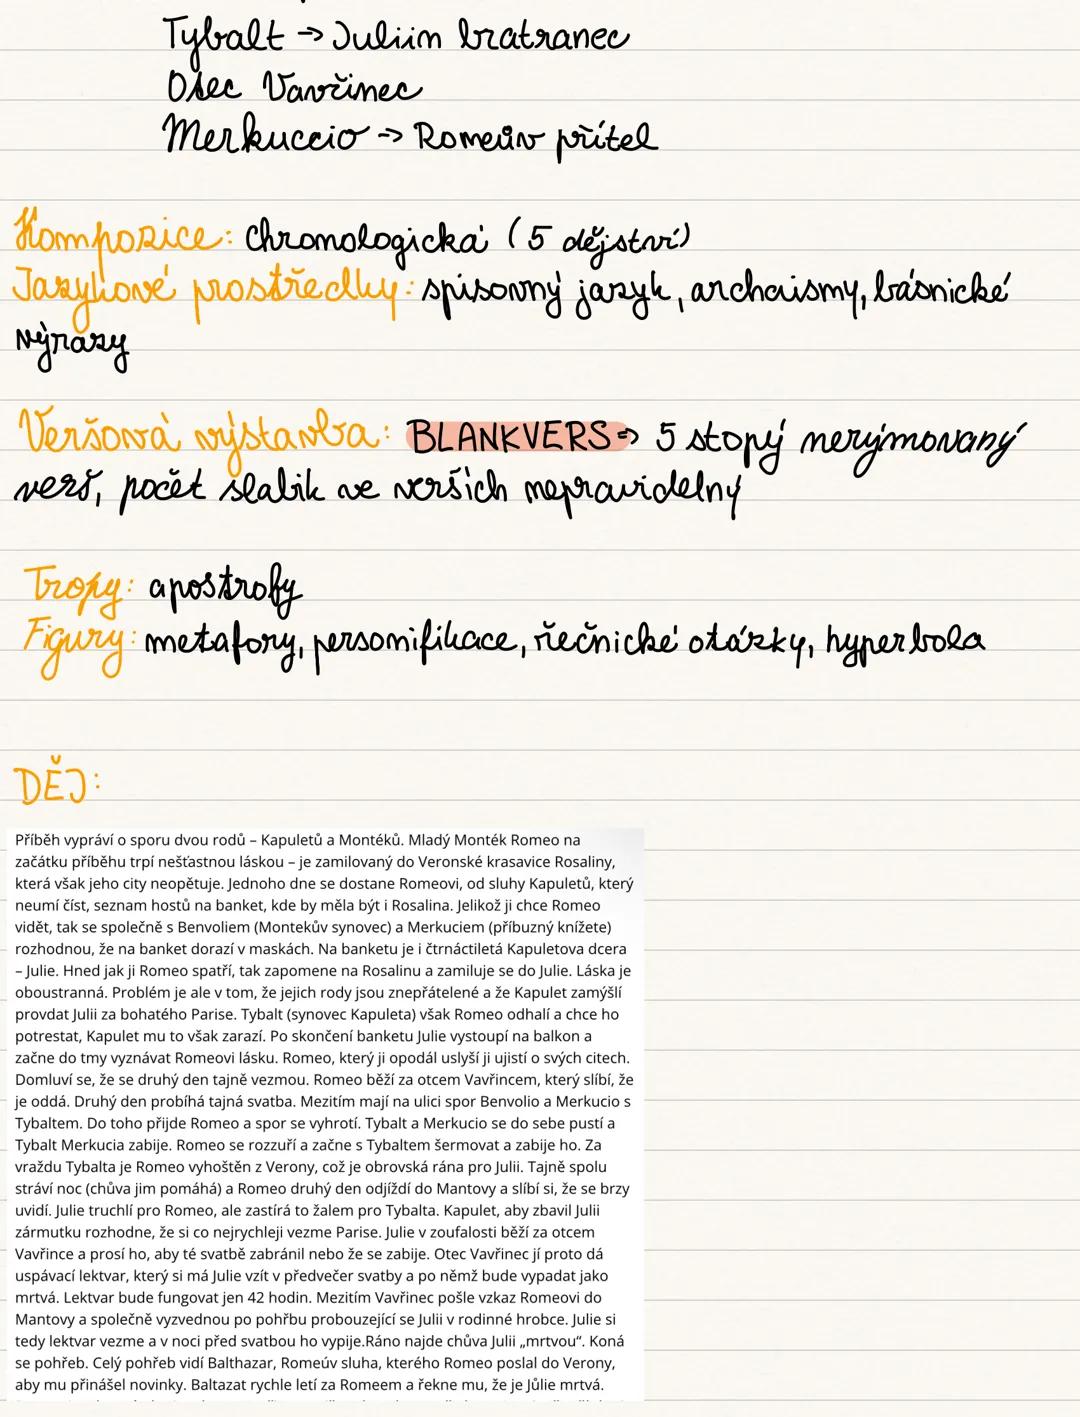 Tybalt → Juliin bratranec
Otec Vavřinec
Merkuccio → Romeův přítel
Kompozice: chronologická (5 dějství)
Jazykové prostředky: spisovný jazyk, archaismy, básnické
výrazy
Veršová výstavba: BLANKVERS => 5 stopý nerýmovaný
verš, počet slabik ve verších nepravidelný
Tropy: apostrofy
Figury: metafory, personifikace, řečnické otázky, hyperbola
DĚJ:
Příběh vypráví o sporu dvou rodů – Kapuletů a Montéků. Mladý Monték Romeo na
začátku příběhu trpí nešťastnou láskou – je zamilovaný do Veronské krasavice Rosaliny,
která však jeho city neopětuje. Jednoho dne se dostane Romeovi, od sluhy Kapuletů, který
neumí číst, seznam hostů na banket, kde by měla být i Rosalina. Jelikož ji chce Romeo
vidět, tak se společně s Benvoliem (Montekův synovec) a Merkuciem (příbuzný knížete)
rozhodnou, že na banket dorazí v maskách. Na banketu je i čtrnáctiletá Kapuletova dcera
– Julie. Hned jak ji Romeo spatří, tak zapomene na Rosalinu a zamiluje se do Julie. Láska je
oboustranná. Problém je ale v tom, že jejich rody jsou znepřátelené a že Kapulet zamýšlí
provdat Julii za bohatého Parise. Tybalt (synovec Kapuleta) však Romeo odhalí a chce ho
potrestat, Kapulet mu to však zarazí. Po skončení banketu Julie vystoupí na balkon a
začne do tmy vyznávat Romeovi lásku. Romeo, který ji opodál uslyší ji ujistí o svých citech.
Domluví se, že se druhý den tajně vezmou. Romeo běží za otcem Vavřincem, který slíbí, že
je oddá. Druhý den probíhá tajná svatba. Mezitím mají na ulici spor Benvolio a Merkucio s
Tybaltem. Do toho přijde Romeo a spor se vyhrotí. Tybalt a Merkucio se do sebe pustí a
Tybalt Merkucia zabije. Romeo se rozzuří a začne s Tybaltem šermovat a zabije ho. Za
vraždu Tybalta je Romeo vyhoštěn z Verony, což je obrovská rána pro Julii. Tajně spolu
stráví noc (chůva jim pomáhá) a Romeo druhý den odjíždí do Mantovy a slíbí si, že se brzy
uvidí. Julie truchlí pro Romeo, ale zastírá to žalem pro Tybalta. Kapulet, aby zbavil Julii
zármutku rozhodne, že si co nejrychleji vezme Parise. Julie v zoufalosti běží za otcem
Vavřince a prosí ho, aby té svatbě zabránil nebo že se zabije. Otec Vavřinec jí proto dá
uspávací lektvar, který si má Julie vzít v předvečer svatby a po němž bude vypadat jako
mrtvá. Lektvar bude fungovat jen 42 hodin. Mezitím Vavřinec pošle vzkaz Romeovi do
Mantovy a společně vyzvednou po pohřbu probouzející se Julii v rodinné hrobce. Julie si
tedy lektvar vezme a v noci před svatbou ho vypije.Ráno najde chůva Julii „mrtvou“. Koná
se pohřeb. Celý pohřeb vidí Balthazar, Romeúv sluha, kterého Romeo poslal do Verony,
aby mu přinášel novinky. Baltazat rychle letí za Romeem a řekne mu, že je Jůlie mrtvá.